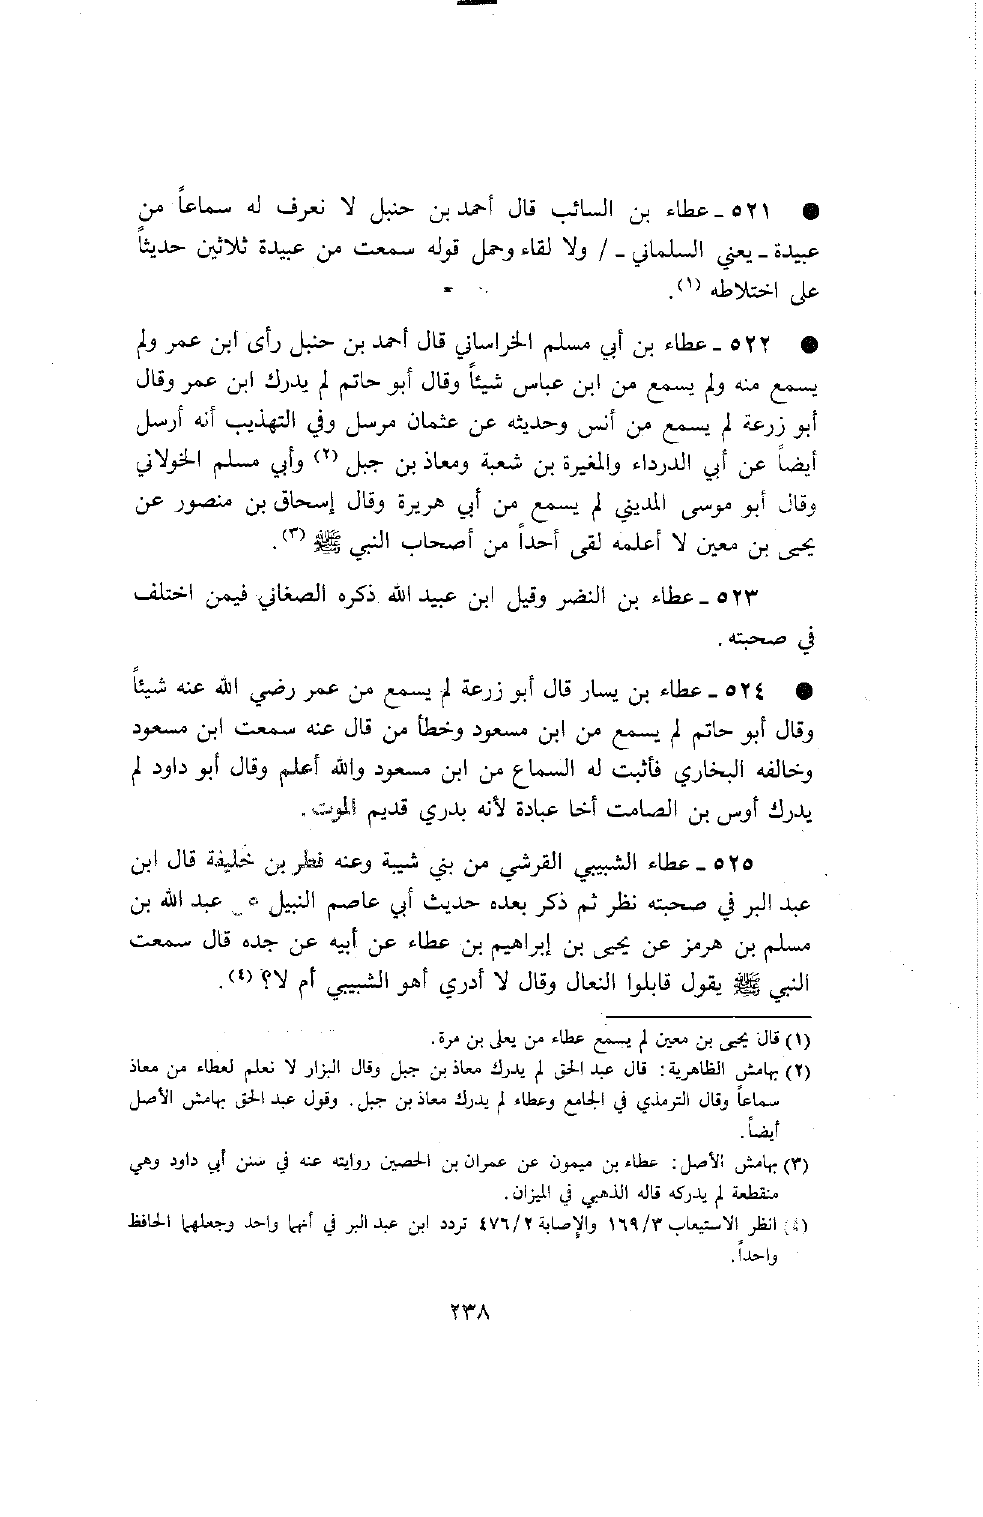 ● ٥٢١ ـ عطاء بن السائب قال أحمد بن حنبل لا نعرف له سماعاً من
عبيدة ـ يعني السلماني ـ / ولا لقاء وحمل قوله سمعت من عبيدة ثلاثين حديثاً
على اختلاطه (١).
● ٥٢٢ ـ عطاء بن أبي مسلم الخراساني قال أحمد بن حنبل رأى ابن عمر ولم
يسمع منه ولم يسمع من ابن عباس شيئاً وقال أبو حاتم لم يدرك ابن عمر وقال
أبو زرعة لم يسمع من أنس وحديثه عن عثمان مرسل وفي التهذيب أنه أرسل
أيضاً عن أبي الدرداء والمغيرة بن شعبة ومعاذ بن جبل (٢) وأبي مسلم الخولاني
وقال أبو موسى المديني لم يسمع من أبي هريرة وقال إسحاق بن منصور عن
يحيى بن معين لا أعلمه لقى أحداً من أصحاب النبي ﷺ (٣).
٥٢٣ ـ عطاء بن النضر وقيل ابن عبيد الله ذكره الصغاني فيمن اختلف
في صحبته .
● ٥٢٤ ـ عطاء بن يسار قال أبو زرعة لم يسمع من عمر رضي الله عنه شيئاً
وقال أبو حاتم لم يسمع من ابن مسعود وخطأ من قال عنه سمعت ابن مسعود
وخالفه البخاري فأثبت له السماع من ابن مسعود والله أعلم وقال أبو داود لم
يدرك أوس بن الصامت أخا عبادة لأنه بدري قديم الموت .
٥٢٥ ـ عطاء الشبيبي القرشي من بني شيبة وعنه فطر بن خليفة قال ابن
عبد البر في صحبته نظر ثم ذكر بعده حديث أبي عاصم النبيل عبد الله بن
مسلم بن هرمز عن يحيى بن إبراهيم بن عطاء عن أبيه عن جده قال سمعت
النبي ﷺ يقول قابلوا النعال وقال لا أدري أهو الشبيبي أم لا؟ (٤).
(١) قال يحيى بن معين لم يسمع عطاء من يعلى بن مرة.
(٢) بهامش الظاهرية: قال عبد الحق لم يدرك معاذ بن جبل وقال البزار لا نعلم لعطاء من معاذ
سماعاً وقال الترمذي في الجامع وعطاء لم يدرك معاذ بن جبل. وقول عبد الحق بهامش الأصل
أيضاً.
(٣) بهامش الأصل: عطاء بن ميمون عن عمران بن الحصين روايته عنه في سنن أبي داود وهي
منقطعة لم يدركه قاله الذهبي في الميزان.
(٤) انظر الاستيعاب ١٦٩/٣ والإصابة ٤٧٦/٢ تردد ابن عبد البر في أنهما واحد وجعلهما الحافظ
واحداً.
٢٣٨